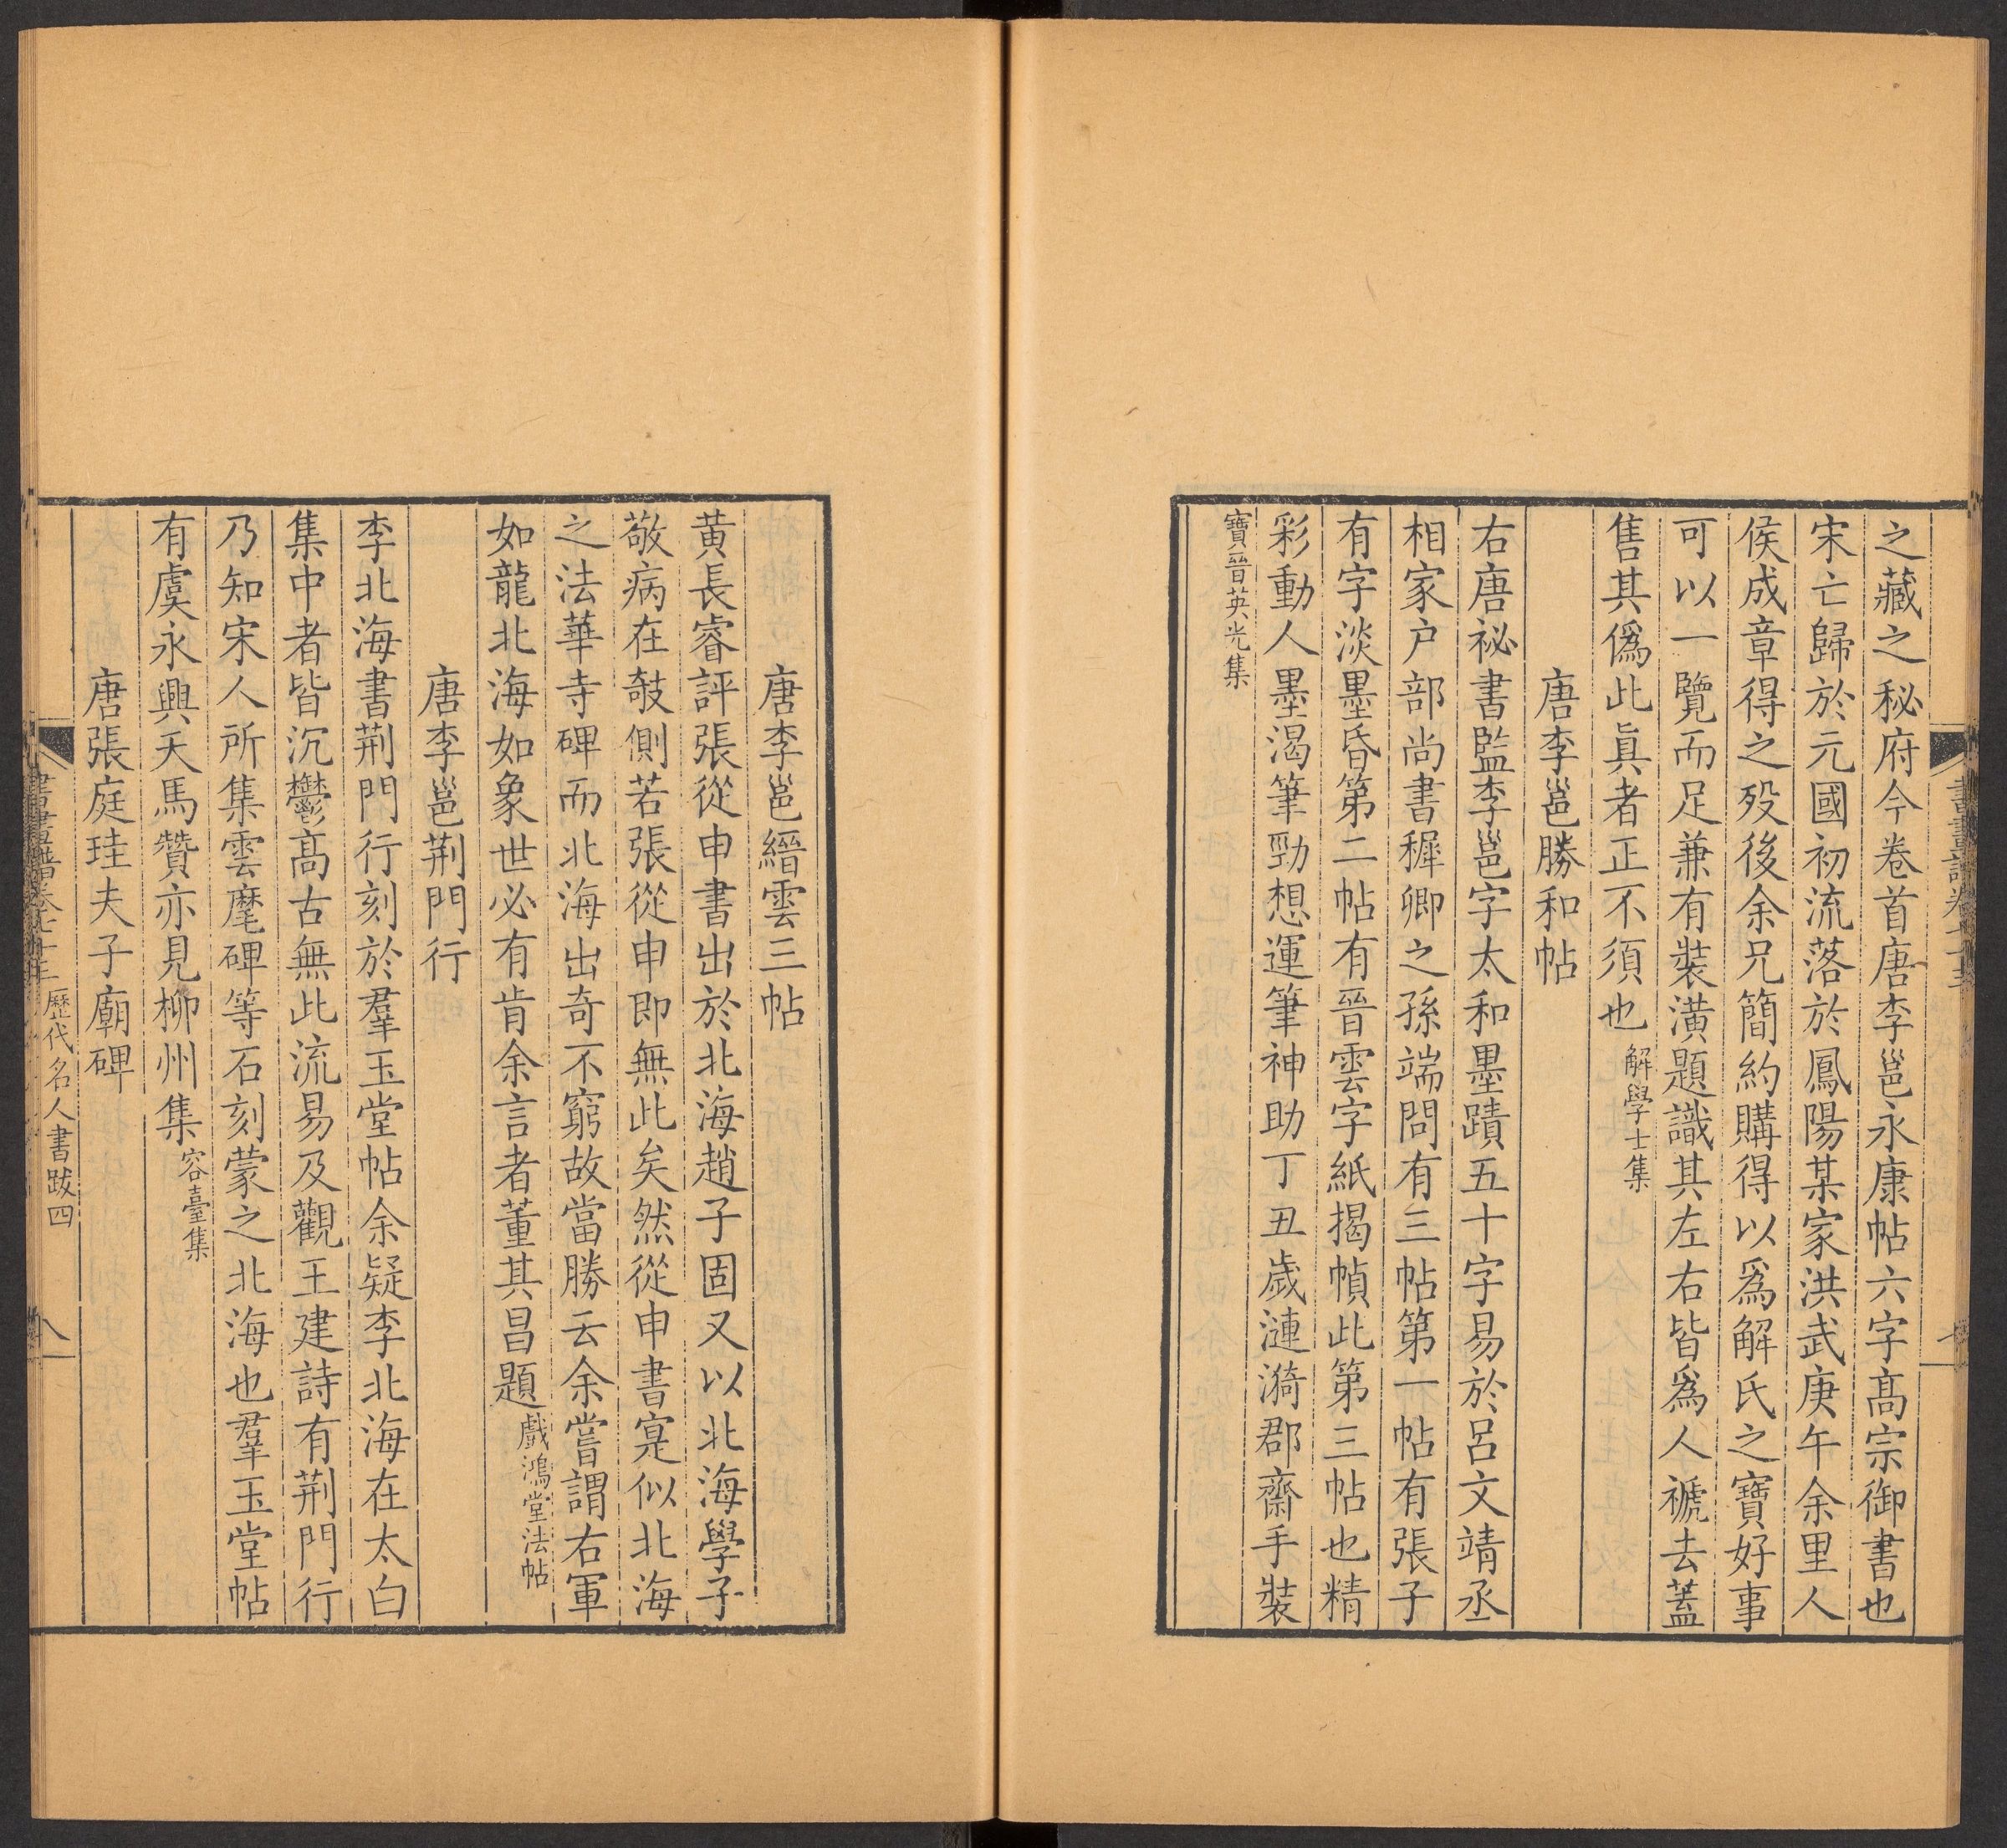 之藏之秘府今卷首唐李邕永康帖六字髙宗御書也
宋亡歸於元國初流落於鳳陽某家洪武庚午余里人
侯成章得之歿後余兄簡約購得以爲解氏之寶好事
可以一覽而足兼有裝潢題識其左右皆爲人褫去蓋
售其僞此眞者正不須也 解學士集
唐李邕勝和帖
右唐祕書監李邕字太和墨蹟五十字易於呂文靖丞
相家户部尚書穉卿之孫端問有三帖第一帖有張子
有字淡墨昏第二帖有晉雲字紙揭幀此第三帖也精
彩動人墨渴筆勁想運筆神助丁丑歲漣漪郡齋手裝
寶晉英光集
唐李邕縉雲三帖
黄長睿評張從申書出於北海趙子固又以北海學子
敬病在攲側若張從申即無此矣然從申書寔似北海
之法華寺碑而北海出奇不窮故當勝云余嘗謂右軍
如龍北海如象世必有肯余言者董其昌題 戲鴻堂法帖
唐李邕荆門行
李北海書荆門行刻於羣玉堂帖余疑李北海在太白
集中者皆沉鬱髙古無此流易及觀王建詩有荆門行
乃知宋人所集雲麾碑等石刻蒙之北海也羣玉堂帖
有虞永興天馬贊亦見柳州集 容臺集
唐張庭珪夫子廟碑
書畫譜卷七十三 歷代名人書跋四 八